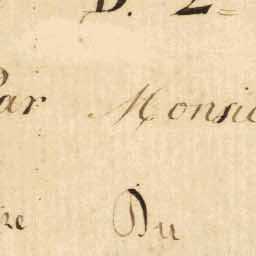 D. 2=
Par Monsie
re Du